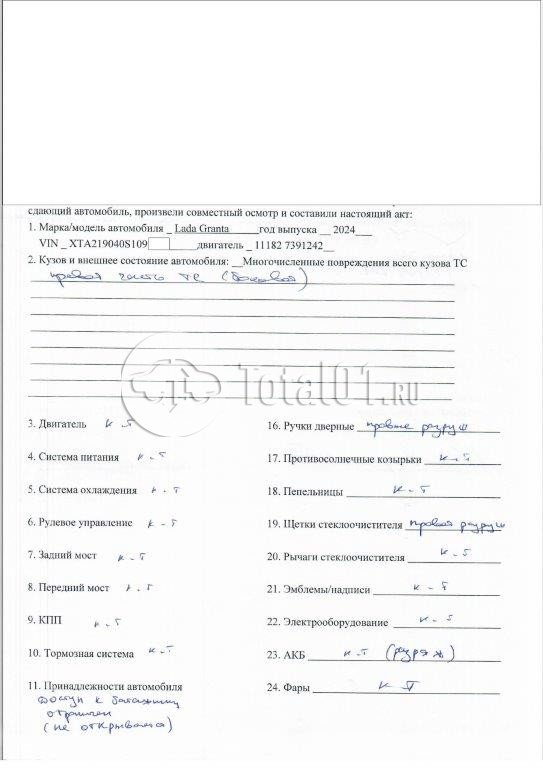 сдающий автомобиль, произвели совместный осмотр и составили настоящий акт:
1. Марка/модель автомобиля _ Lada Granta______год выпуска __ 2024___
VIN _ XTA219040S109 _____двигатель _ 11182 7391242__
2. Кузов и внешнее состояние автомобиля: __Многочисленные повреждения всего кузова ТС
правая часть ТС (боковая)
Total01.RU
3. Двигатель к-т
4. Система питания к-т
5. Система охлаждения к-т
6. Рулевое управление к-т
7. Задний мост к-т
8. Передний мост к-т
9. КПП к-т
10. Тормозная система к-т
11. Принадлежности автомобиля
Доступ к багажнику
ограничен
(не открывается)
16. Ручки дверные правые разруш
17. Противосолнечные козырьки к-т
18. Пепельницы к-т
19. Щетки стеклоочистителя правая разруш
20. Рычаги стеклоочистителя к-т
21. Эмблемы/надписи к-т
22. Электрооборудование к-т
23. АКБ к-т (разряж)
24. Фары к-т